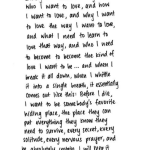 who I want to love, and how
I want to love, and why I want
to love the way I want to love,
and what I need to learn to
love that way, and who I need
to become to become the kind of
love I want to be... and when I
break it all down, when I whittle
it into a single breath, it essentially
comes out like this: Before I die,
I want to be somebody's favorite
hiding place, the place they can
put everything they know they
need to survive, every secret, every
solitude, every nervous prayer, and
be absolutely certain I will keep it